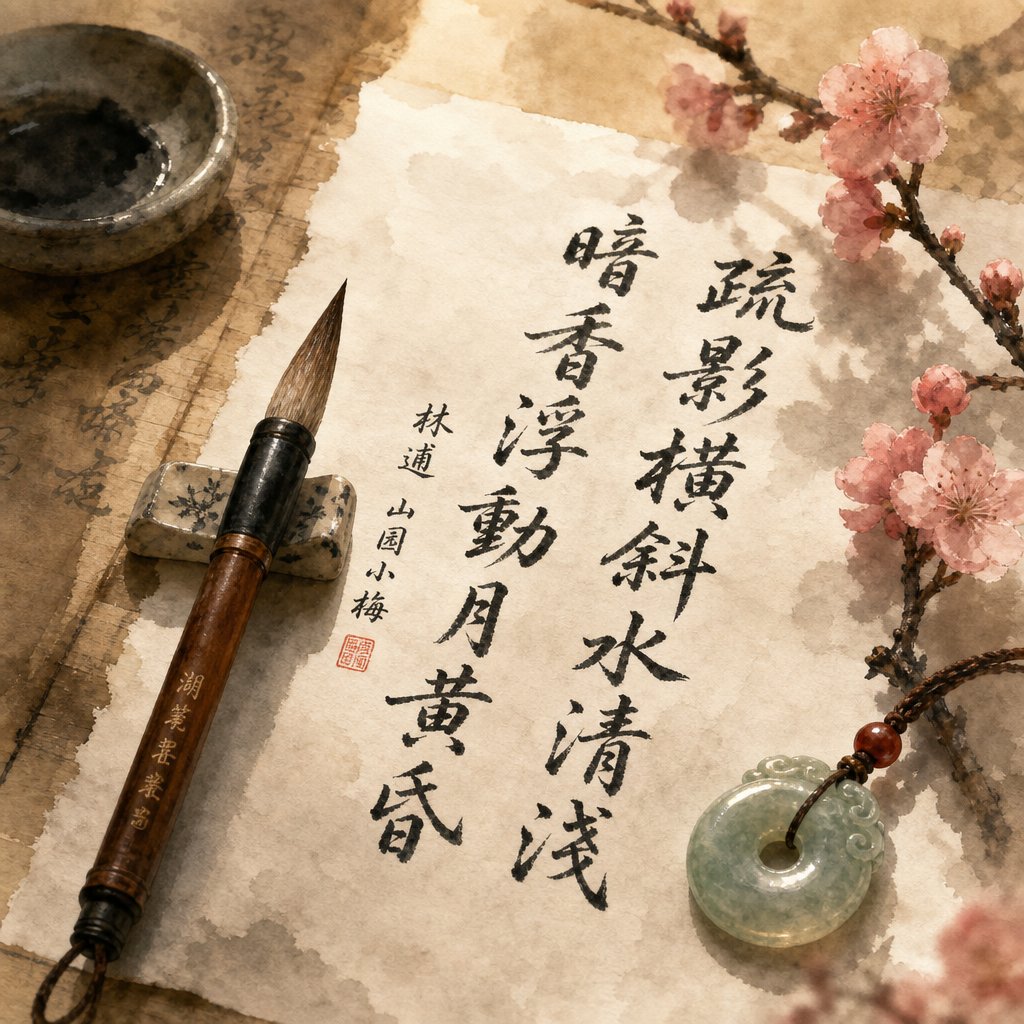 疏影横斜水清淺
暗香浮動月黄昏
林逋 山园小梅
湖